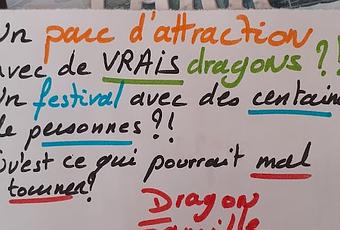 un parc d'attraction
avec de VRAIS dragons ?!
un festival avec des centain
de personnes ?!
Qu'est ce qui pourrait mal
tourner?
Dragon
famille